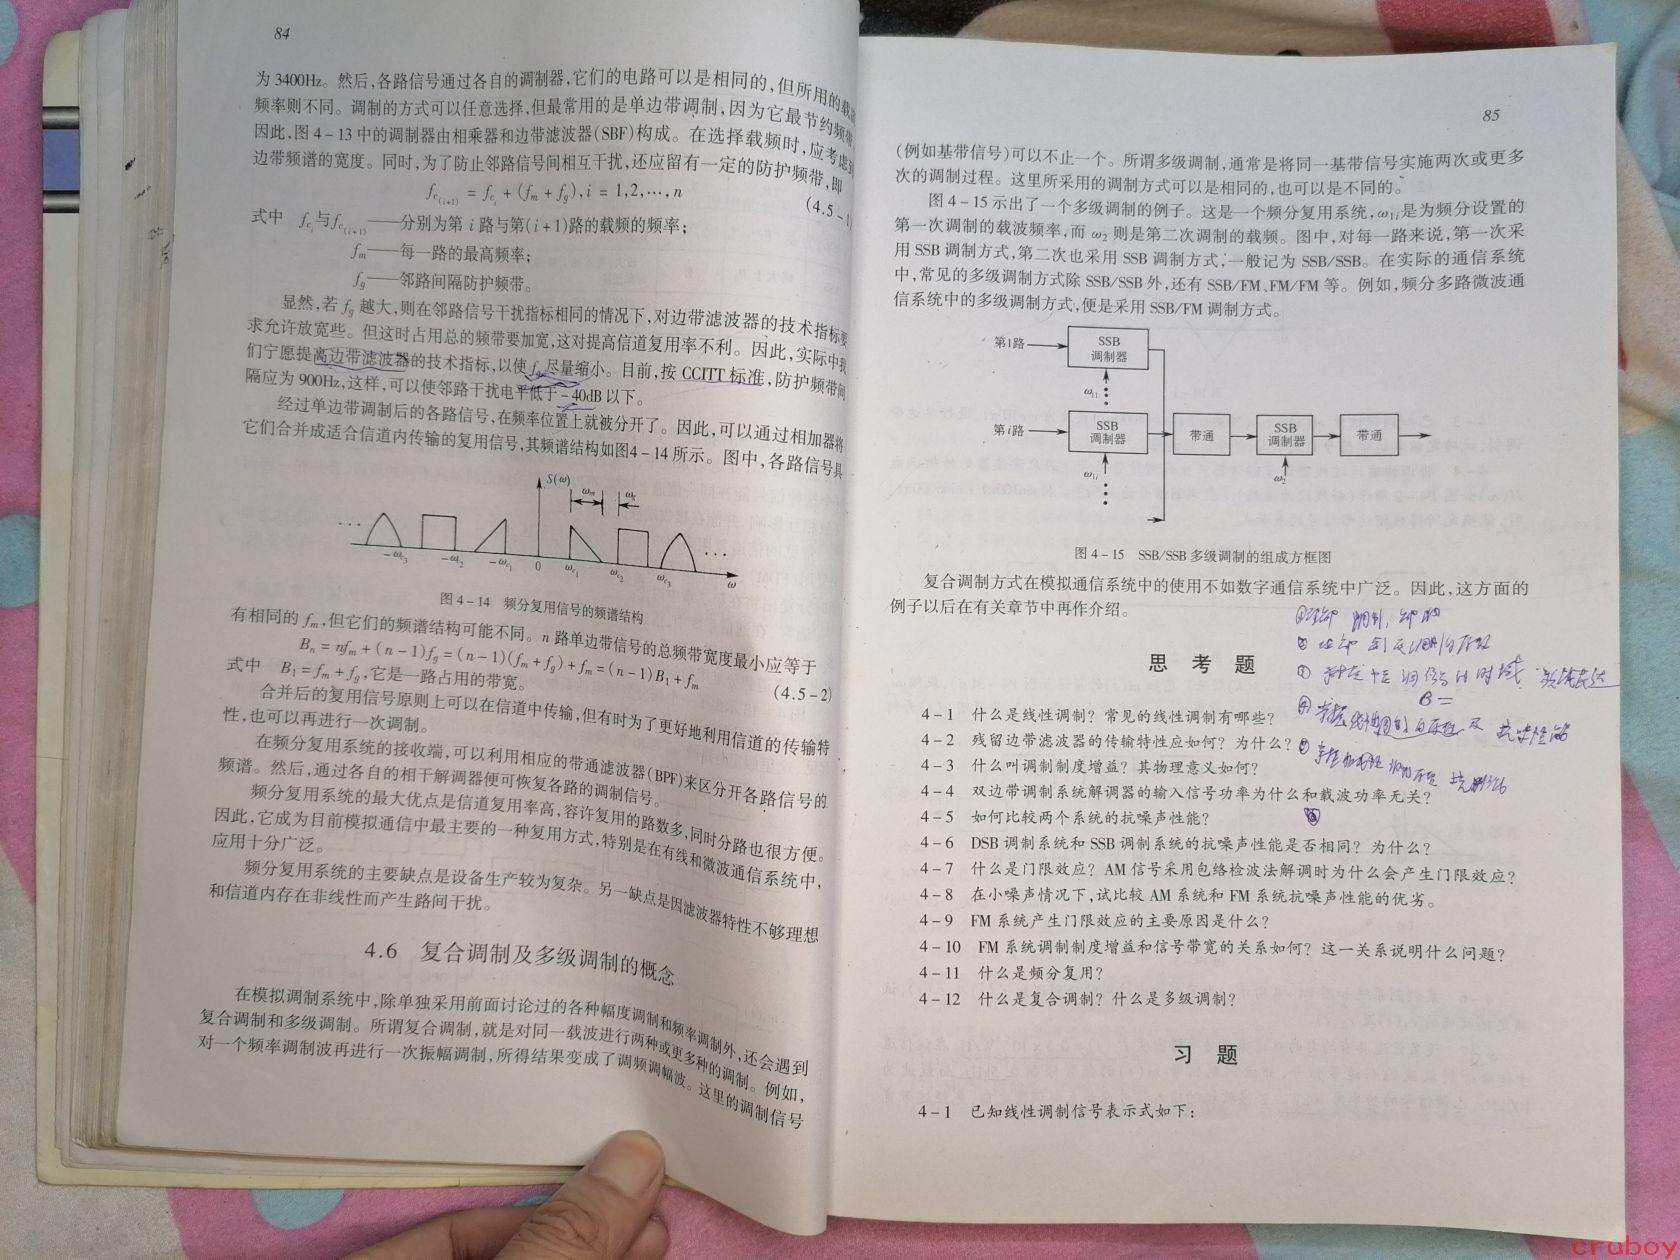 84
为 3400Hz。然后,各路信号通过各自的调制器,它们的电路可以是相同的,但所用的载波
频率则不同。调制的方式可以任意选择,但最常用的是单边带调制,因为它最节约频带。
因此,图 4-13 中的调制器由相乘器和边带滤波器(SBF)构成。在选择载频时,应考虑到
边带频谱的宽度。同时,为了防止邻路信号间相互干扰,还应留有一定的防护频带,即
f_{c(i+1)} = f_{ci} + (f_m + f_g), i = 1,2,…,n (4.5-1)
式中 f_{ci}与f_{c(i+1)}——分别为第 i 路与第(i+1)路的载频的频率;
f_m——每一路的最高频率;
f_g——邻路间隔防护频带。
显然,若 f_g 越大,则在邻路信号干扰指标相同的情况下,对边带滤波器的技术指标要
求允许放宽些。但这时占用总的频带要加宽,这对提高信道复用率不利。因此,实际中我
们宁愿提高边带滤波器的技术指标,以使 f_g 尽量缩小。目前,按 CCITT 标准,防护频带间
隔应为 900Hz,这样,可以使邻路干扰电平低于 -40dB 以下。
经过单边带调制后的各路信号,在频率位置上就被分开了。因此,可以通过相加器将
它们合并成适合信道内传输的复用信号,其频谱结构如图4-14 所示。图中,各路信号具
S(ω)
ω_m ω_g
… …
-ω_{c3} -ω_{c2} -ω_{c1} 0 ω_{c1} ω_{c2} ω_{c3} ω
图 4-14 频分复用信号的频谱结构
有相同的 f_m,但它们的频谱结构可能不同。n 路单边带信号的总频带宽度最小应等于
B_n = nf_m + (n-1)f_g = (n-1)(f_m + f_g) + f_m = (n-1)B_1 + f_m (4.5-2)
式中 B_1 = f_m + f_g,它是一路占用的带宽。
合并后的复用信号原则上可以在信道中传输,但有时为了更好地利用信道的传输特
性,也可以再进行一次调制。
在频分复用系统的接收端,可以利用相应的带通滤波器(BPF)来区分开各路信号的
频谱。然后,通过各自的相干解调器便可恢复各路的调制信号。
频分复用系统的最大优点是信道复用率高,容许复用的路数多,同时分路也很方便。
因此,它成为目前模拟通信中最主要的一种复用方式,特别是在有线和微波通信系统中,
应用十分广泛。
频分复用系统的主要缺点是设备生产较为复杂。另一缺点是因滤波器特性不够理想
和信道内存在非线性而产生路间干扰。
4.6 复合调制及多级调制的概念
在模拟调制系统中,除单独采用前面讨论过的各种幅度调制和频率调制外,还会遇到
复合调制和多级调制。所谓复合调制,就是对同一载波进行两种或更多种的调制。例如,
对一个频率调制波再进行一次振幅调制,所得结果变成了调频调幅波。这里的调制信号
85
(例如基带信号)可以不止一个。所谓多级调制,通常是将同一基带信号实施两次或更多
次的调制过程。这里所采用的调制方式可以是相同的,也可以是不同的。
图 4-15 示出了一个多级调制的例子。这是一个频分复用系统,ω_{1i}是为频分设置的
第一次调制的载波频率,而 ω_2 则是第二次调制的载频。图中,对每一路来说,第一次采
用 SSB 调制方式,第二次也采用 SSB 调制方式,一般记为 SSB/SSB。在实际的通信系统
中,常见的多级调制方式除 SSB/SSB 外,还有 SSB/FM、FM/FM 等。例如,频分多路微波通
信系统中的多级调制方式,便是采用 SSB/FM 调制方式。
第1路 SSB 调制器
ω_{11}
第i路 SSB 调制器 带通 SSB 调制器 带通
ω_{1i} ω_2
图 4-15 SSB/SSB 多级调制的组成方框图
复合调制方式在模拟通信系统中的使用不如数字通信系统中广泛。因此,这方面的
例子以后在有关章节中再作介绍。
B=
思 考 题
4-1 什么是线性调制? 常见的线性调制有哪些?
4-2 残留边带滤波器的传输特性应如何? 为什么?
4-3 什么叫调制制度增益? 其物理意义如何?
4-4 双边带调制系统解调器的输入信号功率为什么和载波功率无关?
4-5 如何比较两个系统的抗噪声性能?
4-6 DSB 调制系统和 SSB 调制系统的抗噪声性能是否相同? 为什么?
4-7 什么是门限效应? AM 信号采用包络检波法解调时为什么会产生门限效应?
4-8 在小噪声情况下,试比较 AM 系统和 FM 系统抗噪声性能的优劣。
4-9 FM 系统产生门限效应的主要原因是什么?
4-10 FM 系统调制制度增益和信号带宽的关系如何? 这一关系说明什么问题?
4-11 什么是频分复用?
4-12 什么是复合调制? 什么是多级调制?
习 题
4-1 已知线性调制信号表示式如下:
cruboy